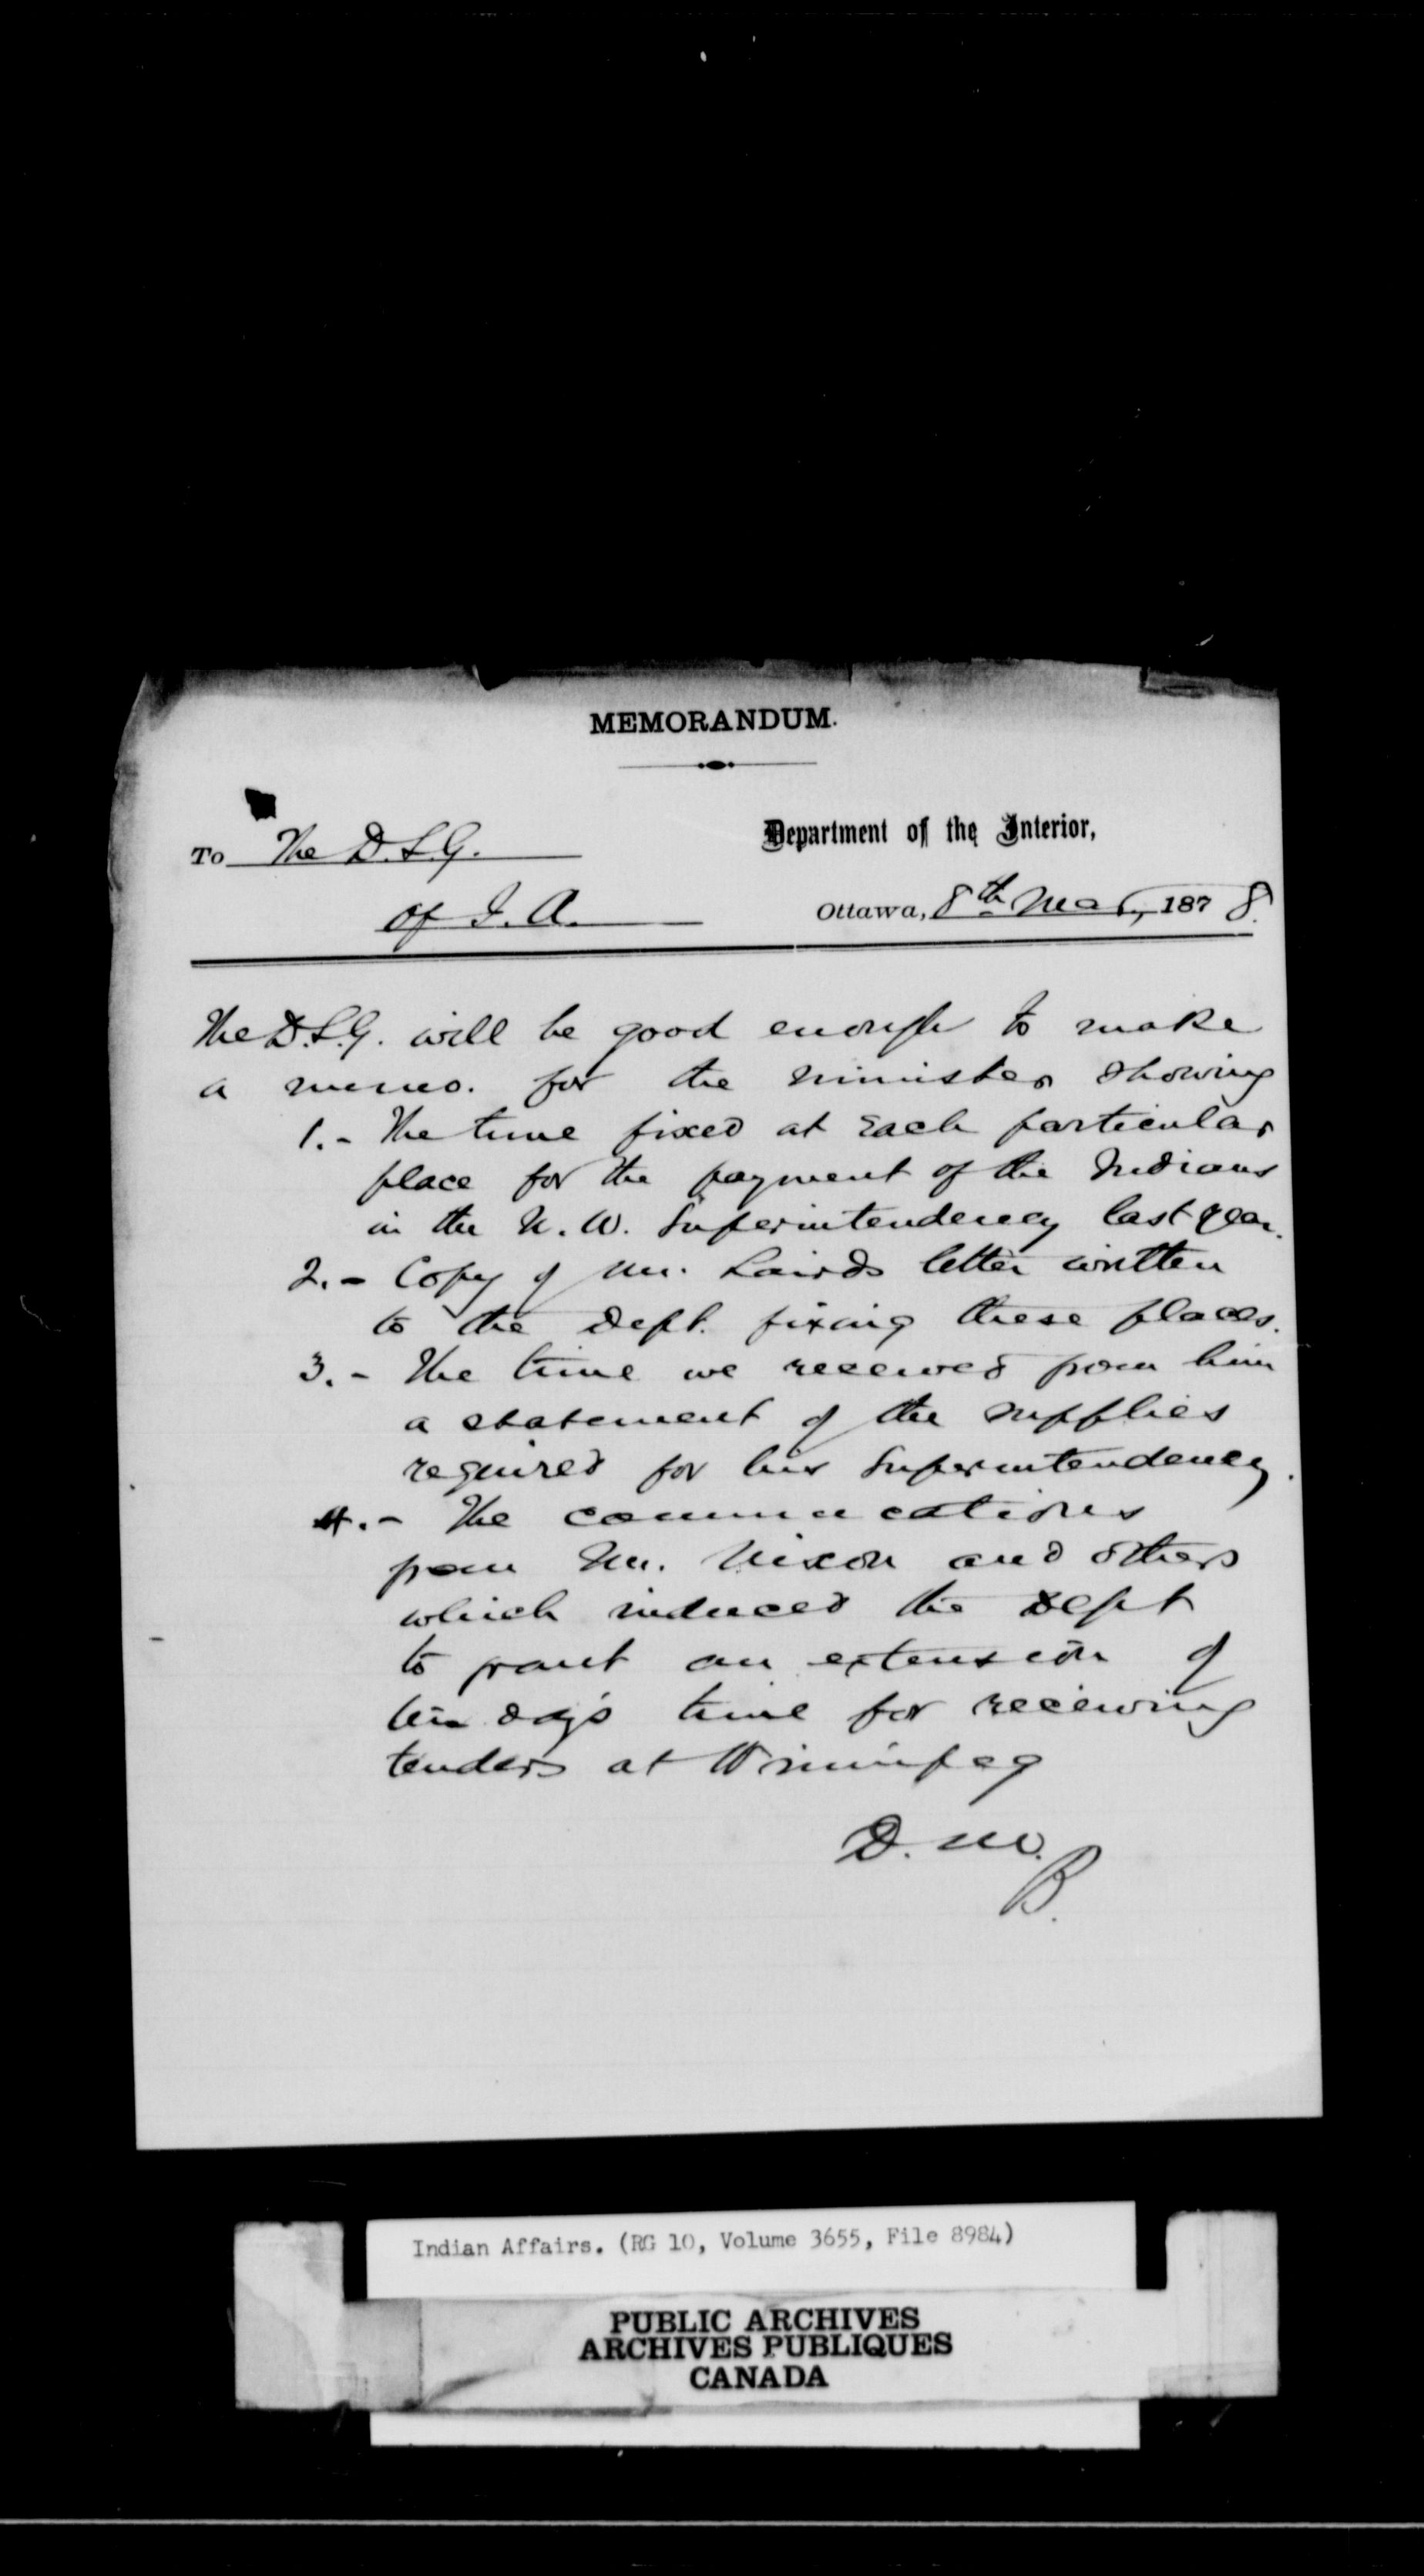 MEMORANDUM.
To The D.S.G.
of I. A.
Department of the Interior,
Ottawa, 8th Mar, 1878.
The D.S.G. will be good enough to make
a memo. for the Minister showing
1.- The time fixed at each particular
place for the payment of the Indians
in the N. W. Superintendency last year.
2.- Copy of Mr. Lairds letter written
to the Dept. fixing these places.
3.- The time we received from him
a statement of the supplies
required for his Superintendency.
4.- The communications
from Mr. Nixon and others
which induced the Dept
to grant an extension of
ten day's time for receiving
tenders at Winnipeg
D. M.
B.
Indian Affairs. (RG 10, Volume 3655, File 8984)
PUBLIC ARCHIVES
ARCHIVES PUBLIQUES
CANADA